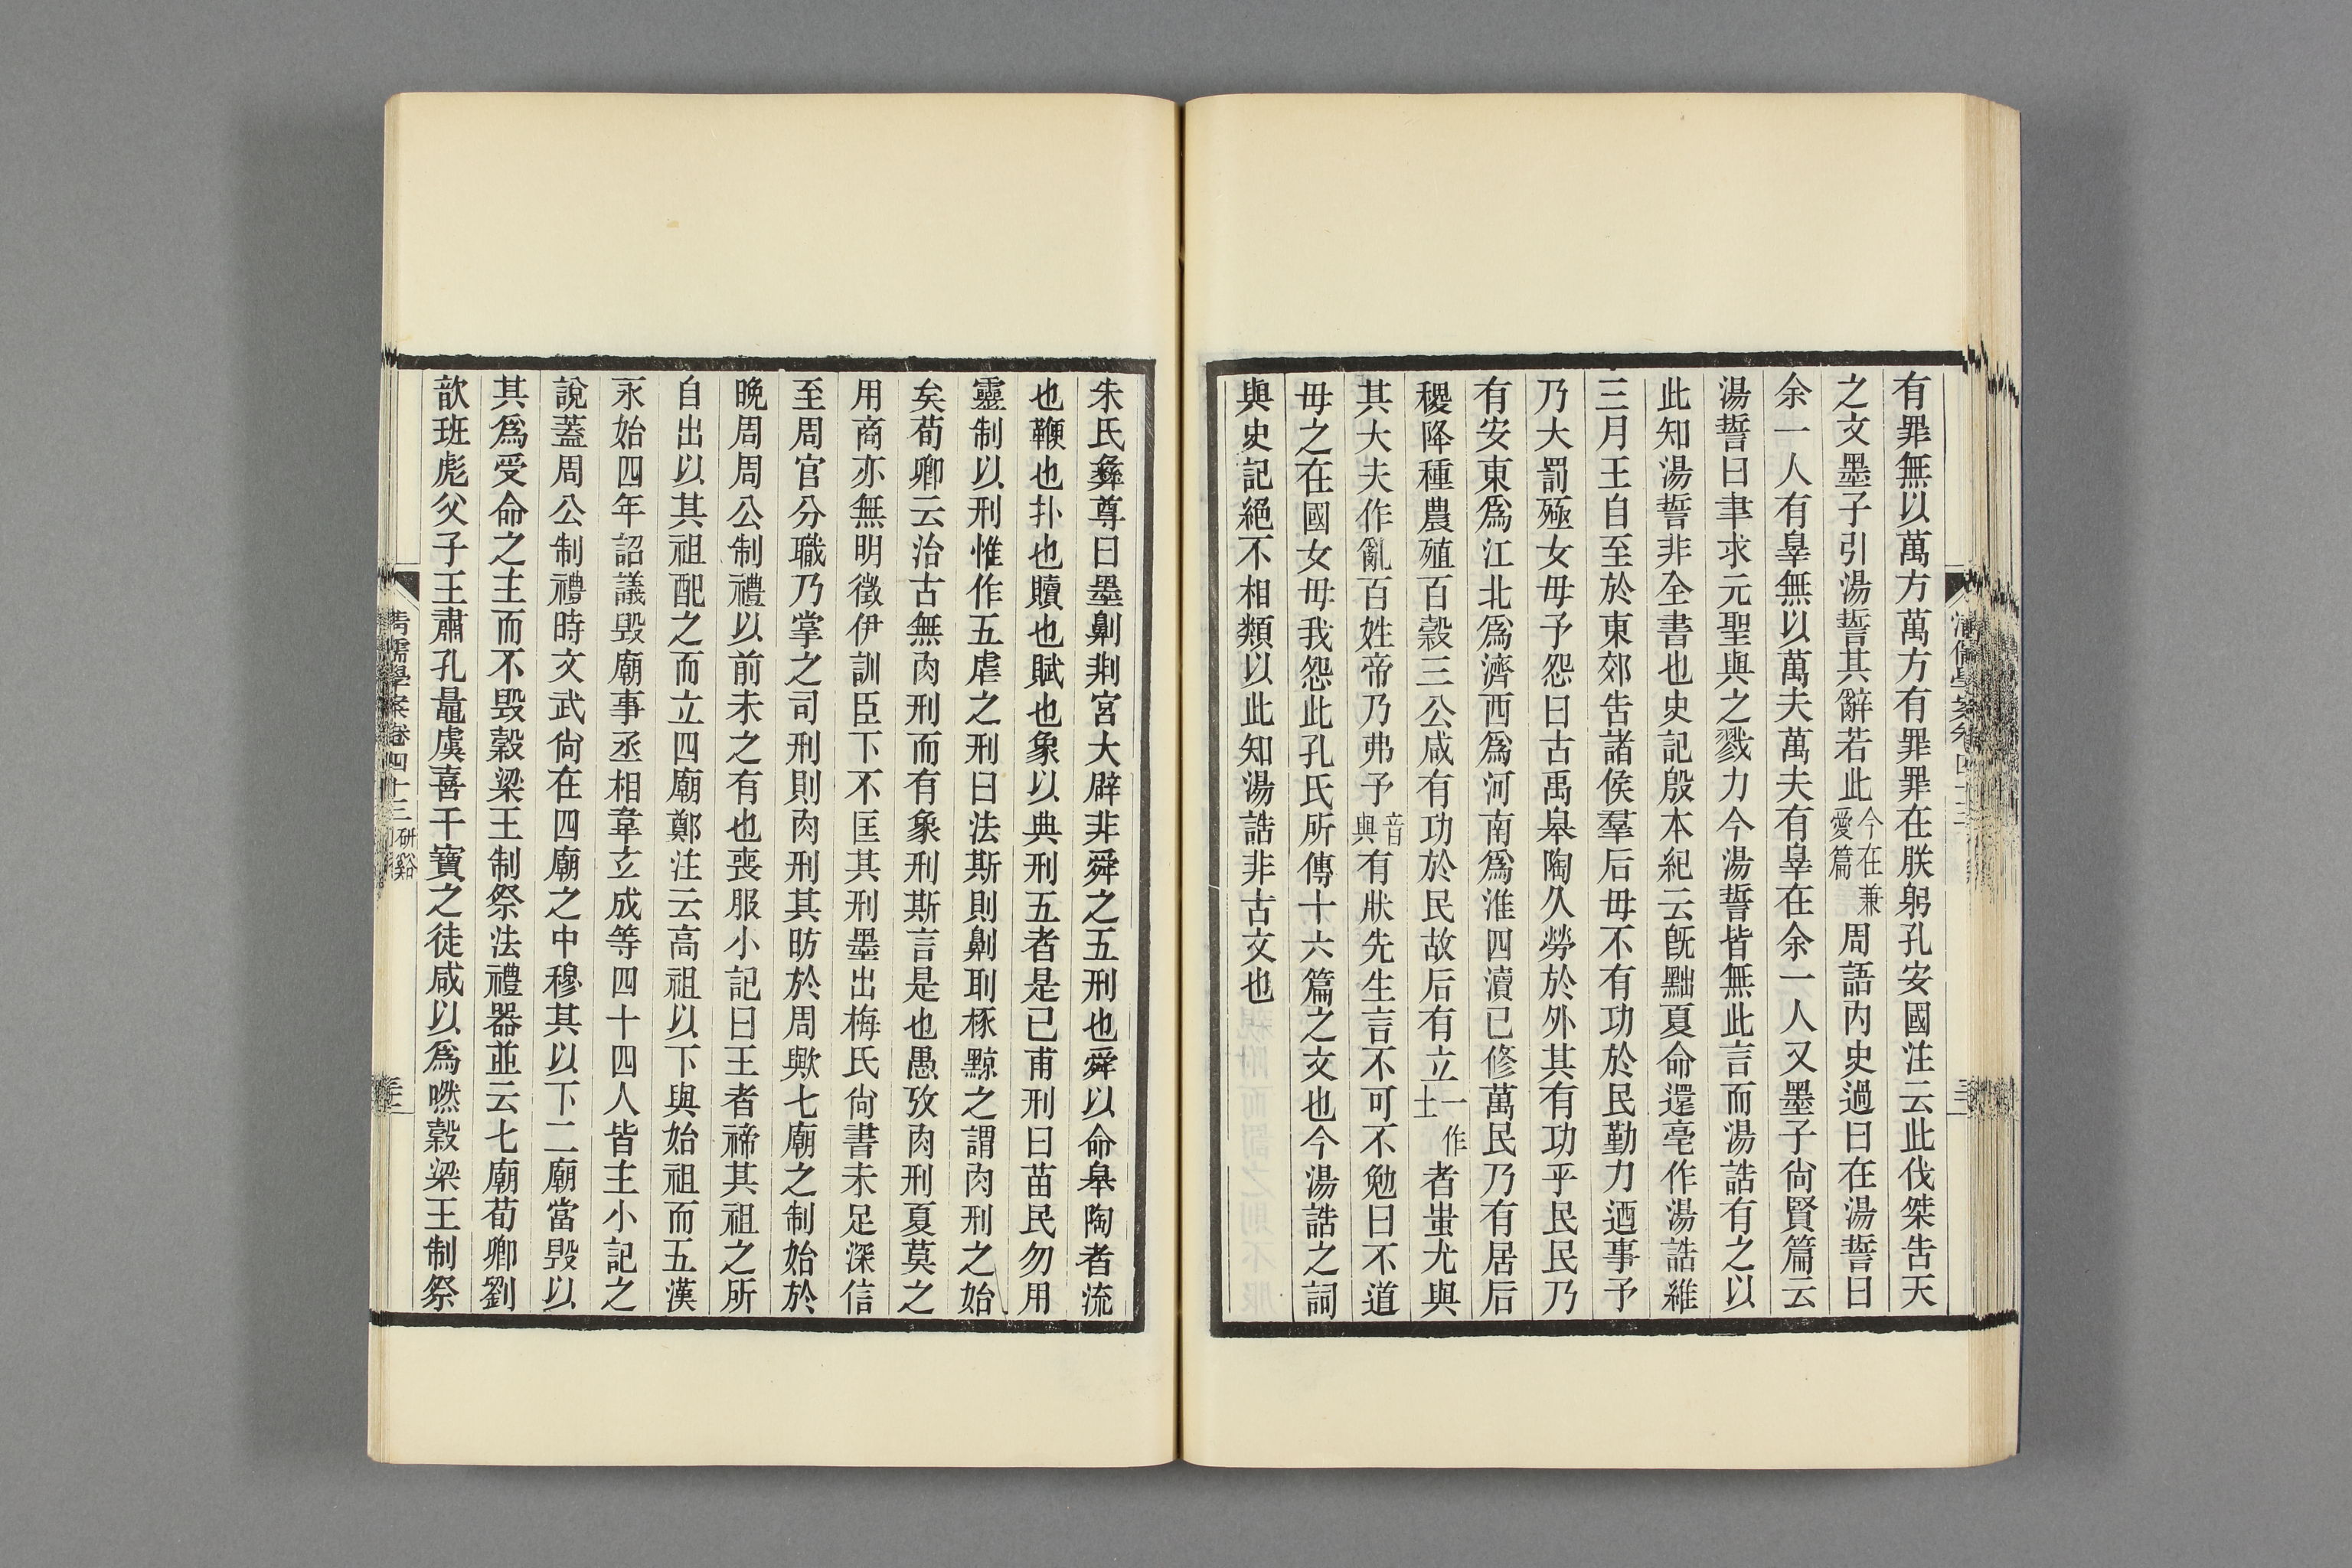 有罪無以萬方萬方有罪罪在朕躬孔安國注云此伐桀告天
之文墨子引湯誓其辭若此今在兼愛篇周語內史過曰在湯誓曰
余一人有辠無以萬夫萬夫有辠在余一人又墨子尙賢篇云
湯誓曰聿求元聖與之戮力今湯誓皆無此言而湯誥有之以
此知湯誓非全書也史記殷本紀云旣黜夏命還亳作湯誥維
三月王自至於東郊告諸侯羣后毋不有功於民勤力迺事予
乃大罰殛女毋予怨曰古禹皋陶久勞於外其有功乎民民乃
有安東爲江北爲濟西爲河南爲淮四瀆已修萬民乃有居后
稷降種農殖百穀三公咸有功於民故后有立一作土者蚩尤與
其大夫作亂百姓帝乃弗予音與有狀先生言不可不勉曰不道
毋之在國女毋我怨此孔氏所傳十六篇之文也今湯誥之詞
與史記絕不相類以此知湯誥非古文也
朱氏彝尊曰墨劓剕宮大辟非舜之五刑也舜以命皋陶者流
也鞭也扑也贖也賦也象以典刑五者是已甫刑曰苗民勿用
靈制以刑惟作五虐之刑曰法斯則劓刵椓黥之謂肉刑之始
矣荀卿云治古無肉刑而有象刑斯言是也愚攷肉刑夏莫之
用商亦無明徵伊訓臣下不匡其刑墨出梅氏尙書未足深信
至周官分職乃掌之司刑則肉刑其昉於周歟七廟之制始於
晚周周公制禮以前未之有也喪服小記曰王者禘其祖之所
自出以其祖配之而立四廟鄭注云高祖以下與始祖而五漢
永始四年詔議毀廟事丞相韋玄成等四十四人皆主小記之
說蓋周公制禮時文武尙在四廟之中穆其以下二廟當毀以
其爲受命之主而不毀穀梁王制祭法禮器並云七廟荀卿劉
歆班彪父子王肅孔鼂虞喜干寶之徒咸以爲嘫穀梁王制祭
淸儒學案卷四十三 研谿